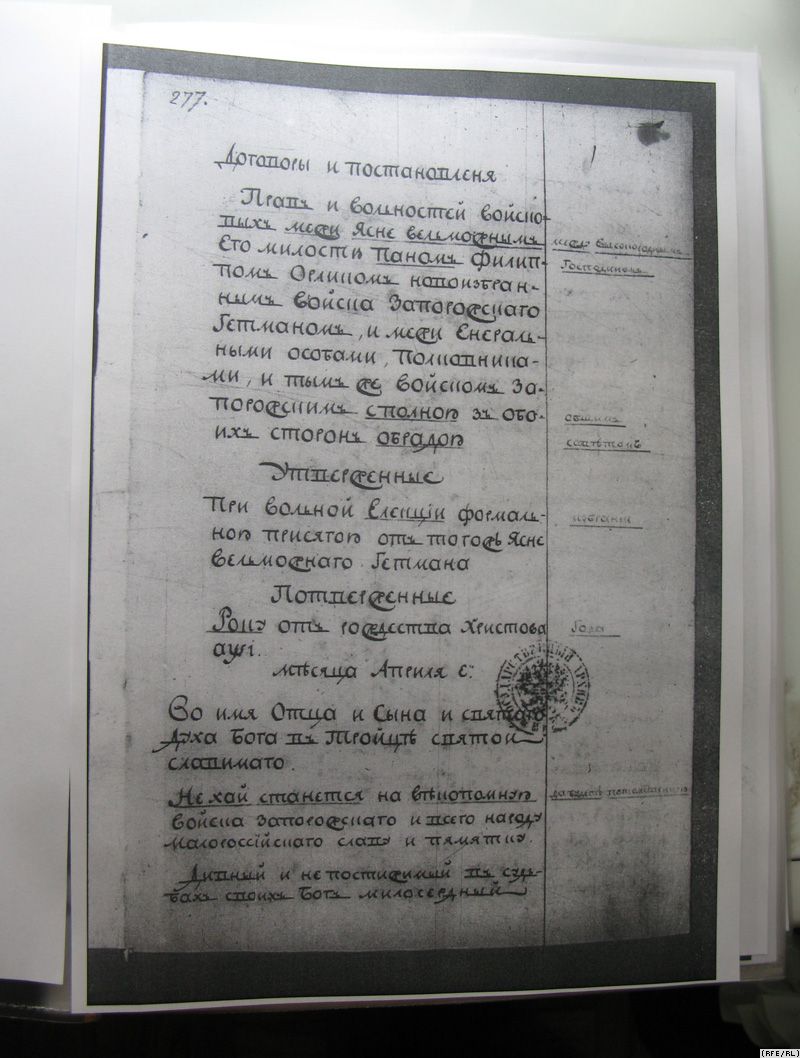 277.
Договоры и постановленя
Правъ и вольностей войско-
выхъ межи Ясне вельможнымъ
Его милостю Паномъ Филип-
помъ Орликомъ новоизбран-
нымъ войска Запорожскаго
Гетманомъ, и межи Енераль-
ными особами, Полковника-
ми, и тымъ же войскомъ За-
порожскимъ сполною зъ обо-
ихъ сторонъ обрадою
Утверженные
При вольной Елекціи формаль-
ною присягою отъ тогожъ Ясне
вельможнаго Гетмана
Потверженные
Року отъ рождества Христова
аѱі.
мѣсяца Априля є:
Во имя Отца и Сына и святаго
Духа Бога въ Тройцѣ святой
славимаго.
Нехай станется на вѣкопомную
войска Запорожскаго и всего народу
Малороссійскаго славу и память.
Дивный и непостижимый въ судь-
бахъ своихъ Богъ милосердный
между высокороднымъ
Господиномъ
общимъ
совѣтомъ
избраніи
Года
(RFE/RL)